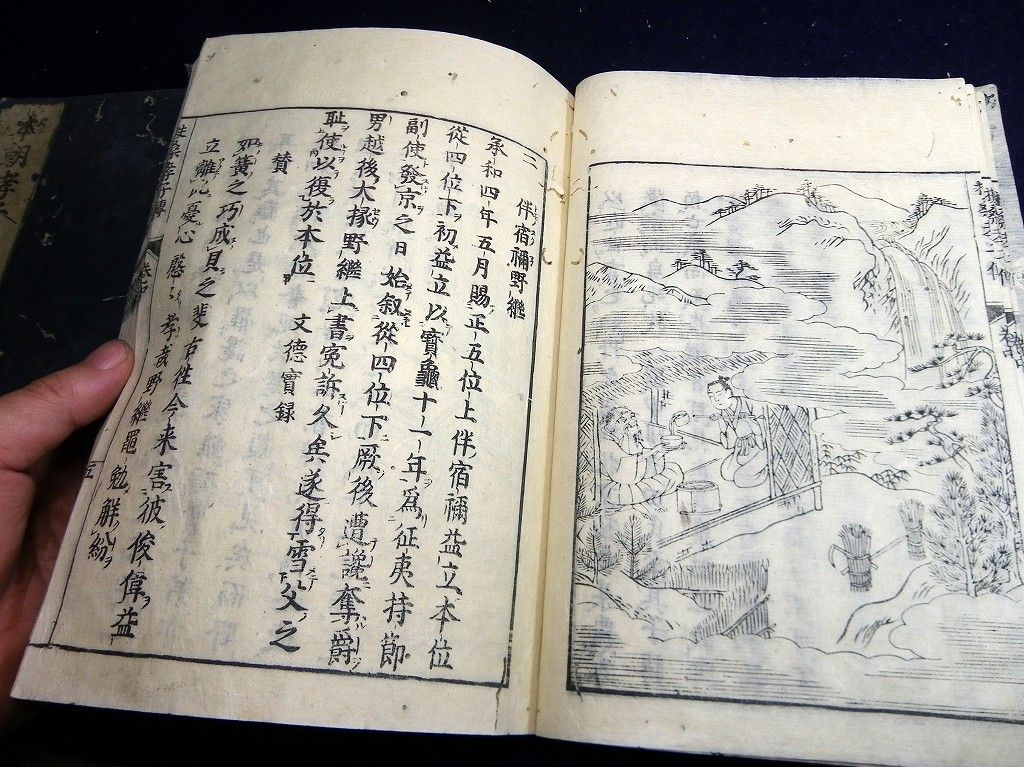 二
伴宿禰野繼
承和四年五月賜正五位上伴宿禰益立本位
從四位下初益立以寶龜十一年爲征夷持節
副使發京之日始叙從四位下厥後遭讒奪爵
男越後大掾野繼上書寃訴久矣遂得雪父之
耻使以復於本位
文德實錄
賛
如簧之巧成貝之斐古往今来害彼俊偉益
立離此憂心慇々孝哉野繼黽勉解紛
本朝孝子